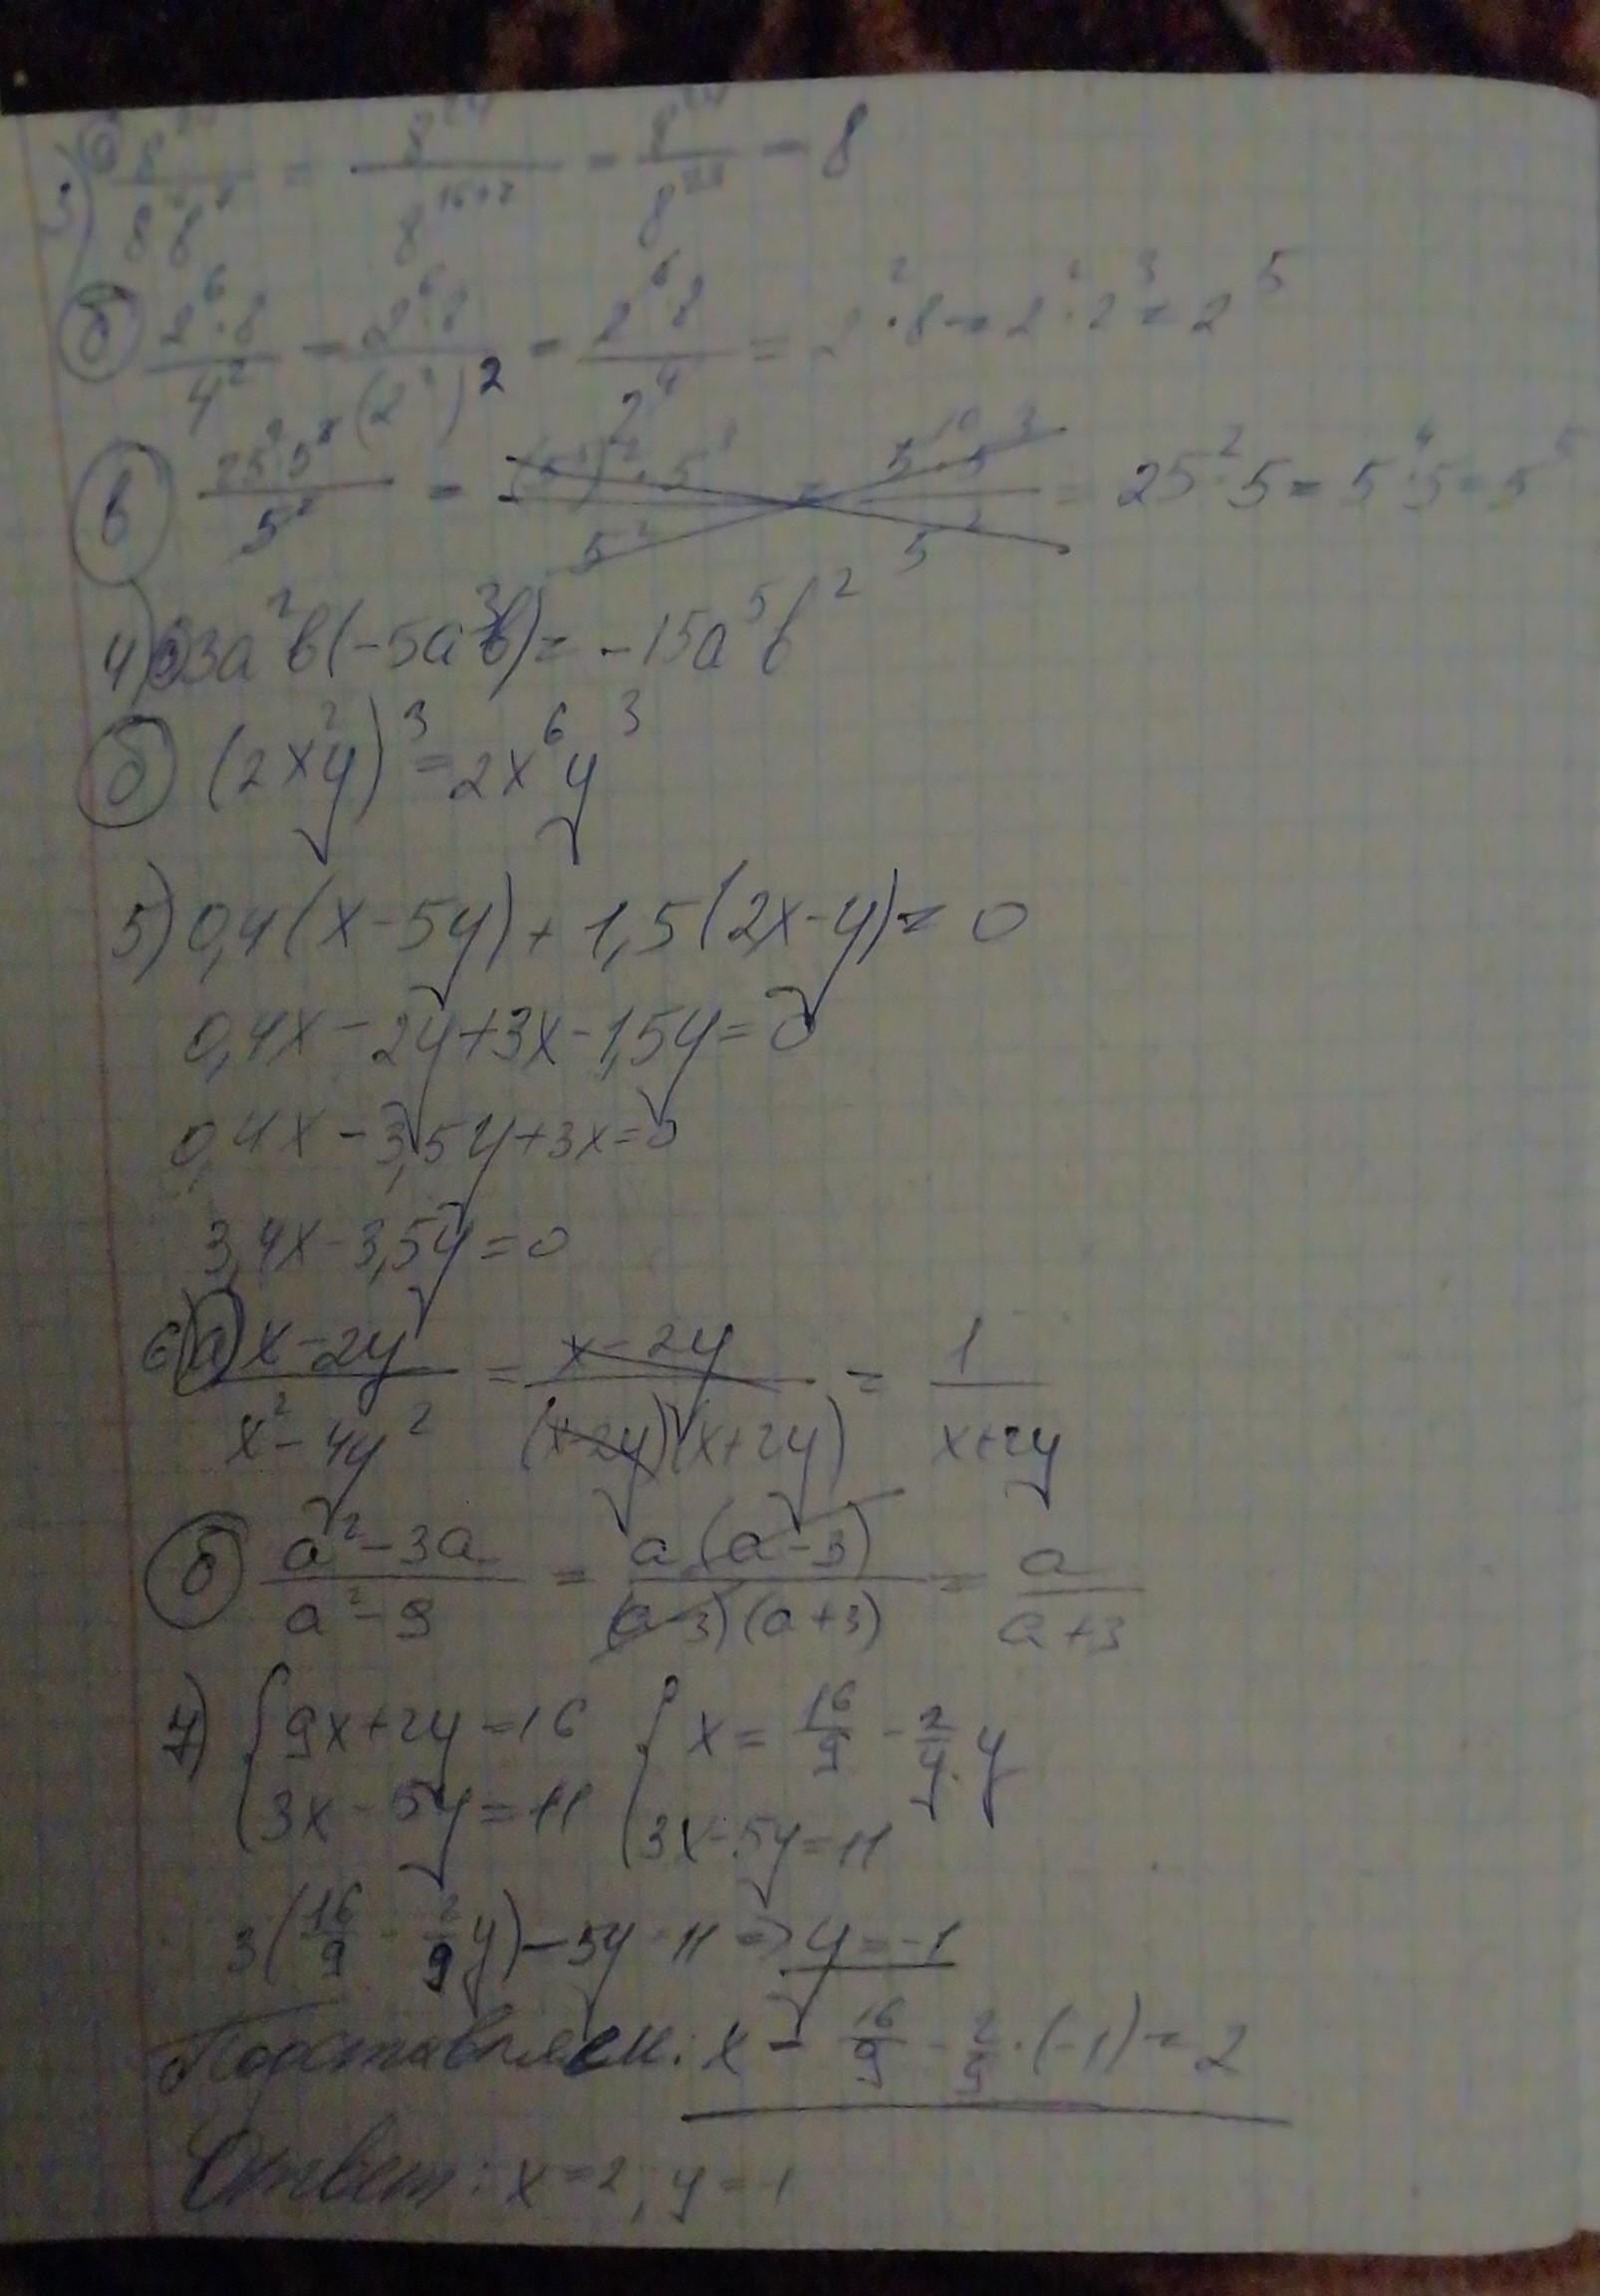 3) а) 8^24 / 8 8^7 = 8^24 / 8^16+7 = 8^24 / 8^23 = 8
б) 2^6·8 / 4^2 = 2^6·8 / (2^2)^2 = 2^6·8 / 2^4 = 2^2·8 = 2^2·2^3 = 2^5
в) 25^2·5^8 / 5^2 = = 25^2·5 = 5^4·5 = 5^5
4) а) 3a^2b(-5a^3b) = -15a^5b^2
б) (2x^2y)^3 = 2x^6y^3
5) 0,4(x-5y) + 1,5(2x-y) = 0
0,4x - 2y + 3x - 1,5y = 0
0,4x - 3,5y + 3x = 0
3,4x - 3,5y = 0
6) а) x-2y / x^2-4y^2 = x-2y / (x-2y)(x+2y) = 1 / x+2y
б) a^2-3a / a^2-9 = a(a-3) / (a-3)(a+3) = a / a+3
7) { 9x+2y=16 { x = 16/9 - 2/9 · y
3x-5y=11 3x-5y=11
3(16/9 - 2/9 y) - 5y = 11 => y = -1
Подставляем: x = 16/9 - 2/9 · (-1) = 2
Ответ: x=2, y=-1